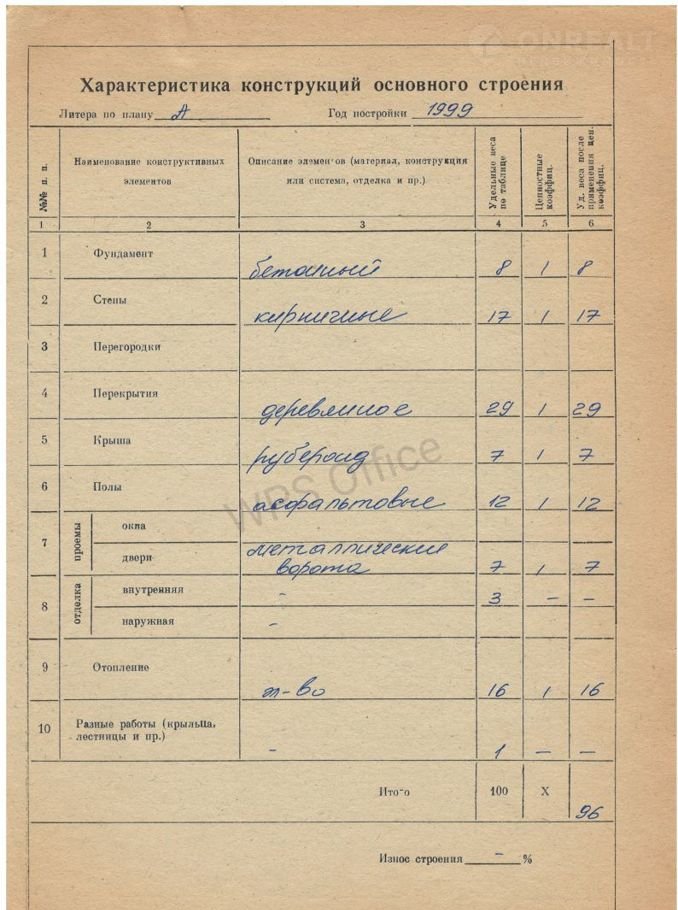 ONREALT
Характеристика конструкций основного строения
Литера по плану А Год постройки 1999
№№ п. п.
Наименование конструктивных элементов
Описание элементов (материал, конструкция или система, отделка и пр.)
Удельные веса по таблице
Ценностные коэффиц.
Уд. веса после применения цен. коэффиц.
1 2 3 4 5 6
1 Фундамент бетонный 8 1 8
2 Стены кирпичные 17 1 17
3 Перегородки
4 Перекрытия деревянное 29 1 29
5 Крыша рубероид 7 1 7
WPS Office
6 Полы асфальтовые 12 1 12
7 проемы окна
двери металлические
ворота 7 1 7
8 отделка внутренняя - 3 - -
наружная -
9 Отопление эл-во 16 1 16
10 Разные работы (крыльца,
лестницы и пр.) - 1 - -
Итого 100 X 96
Износ строения - %